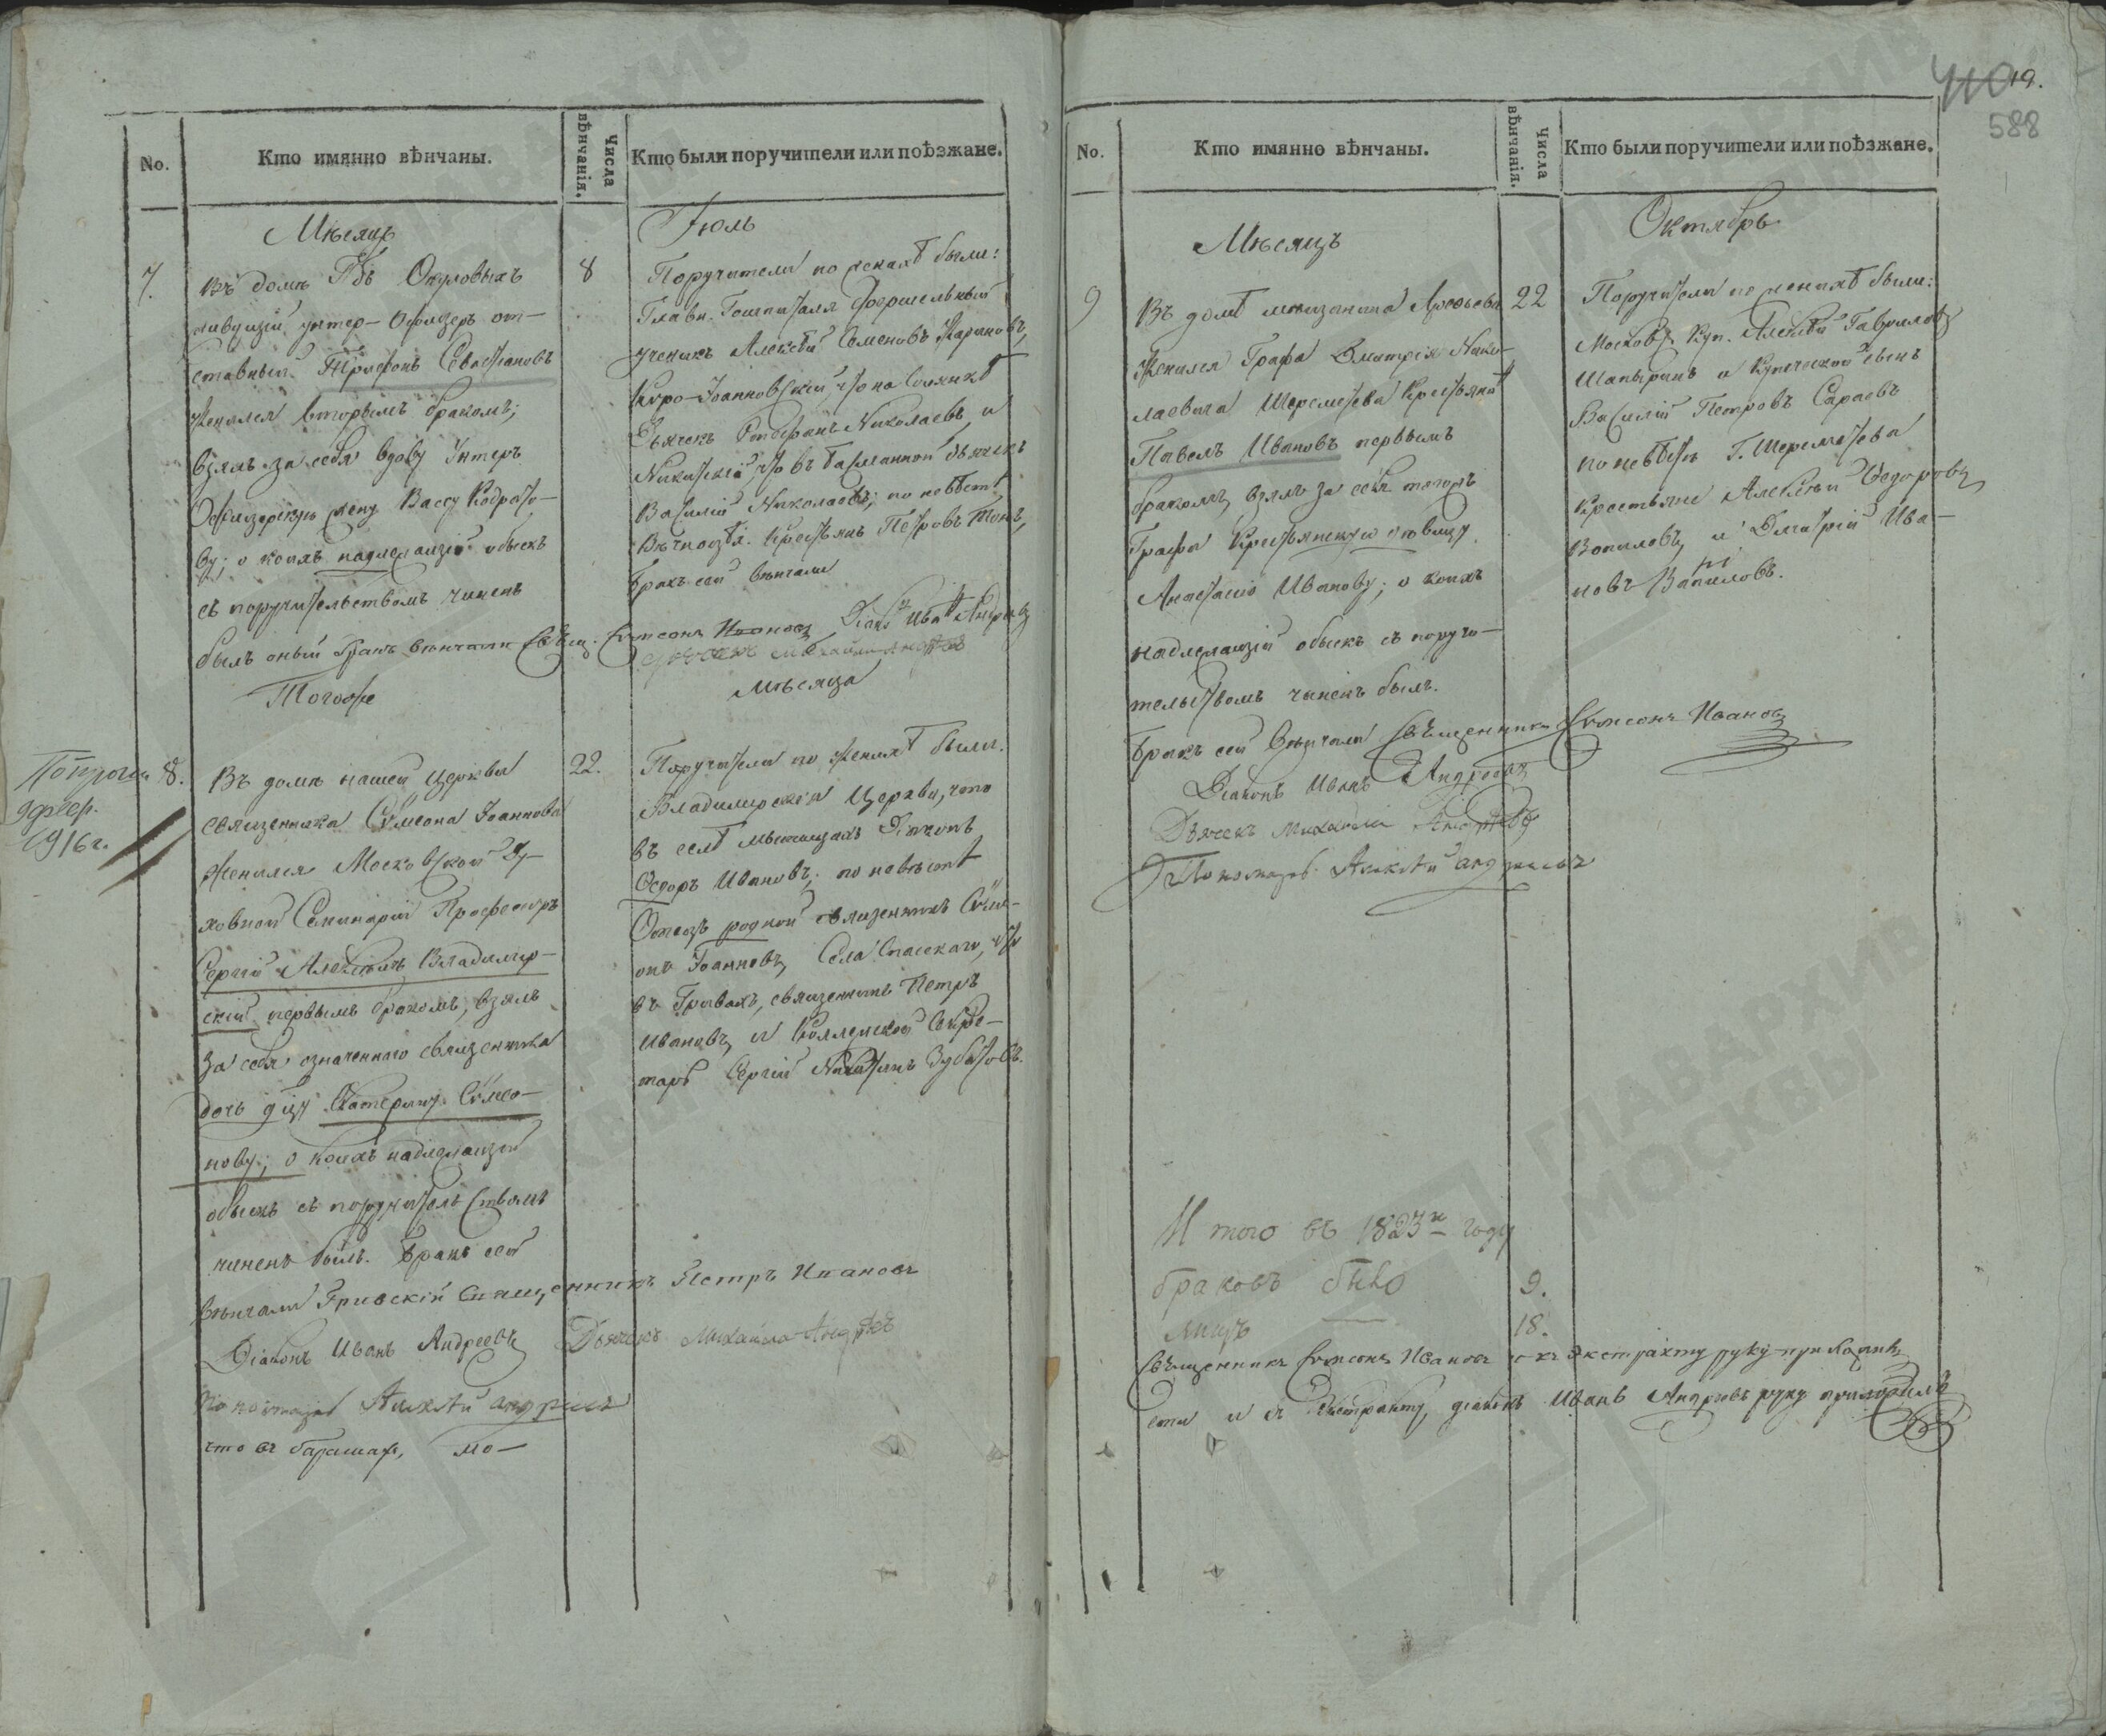 No.
Кто имянно вѣнчаны.
Числа вѣнчанія.
Кто были поручители или поѣзжане.
Мѣсяцъ
Іюль
7.
8
Въ домѣ Окуловыхъ
живущій унтер-Офицеръ от-
ставный Трифонъ Севастьяновъ
женился вторымъ бракомъ;
взялъ за себя вдову Унтеръ
Офицерскую жену Вассу Кодрато-
ву; о коихъ надлежащій обыскъ
съ поручительствомъ чиненъ
былъ оный бракъ вѣнчали Свящ. Сѵмеонъ Иоановъ Діак. Иванъ Андреевъ
Поручители по женихѣ были:
Главн. Гошпиталя Фершельный
ученикъ Алексѣй Семеновъ
Киро-Іоанновскій, что на Солянкѣ
Дьячекъ Стефанъ Николаевъ, и
Никитскій, что въ Басманной дьячекъ
Василій Николаевъ; по невѣстѣ
Вѣчноотд. крестьянъ Петровъ
Бракъ сей вѣнчали
дьячекъ Михайла Андреевъ
Тогоже
Мѣсяца
9 февр.
1916 г.
8.
22.
Въ домѣ нашей церкви
священника Сѵмеона Іоаннова
женился Московской Ду-
ховной Семинаріи Профессоръ
Сергій Алексѣичь Владимір-
скій первымъ бракомъ, взялъ
за себя означеннаго священника
дочь дѣцу Екатерину Сѵмео-
нову; о коихъ надлежащій
обыскъ съ поручительствомъ
чиненъ былъ. Бракъ сей
вѣнчали Гривскій Священникъ Петръ Ивановъ
Діаконъ Иванъ Андреевъ Дьячекъ Михайла Андреевъ
Пономарь Алексѣй Андреевъ
что въ барашах, мо-
Поручители по женихѣ были.
Владимірскія Церкви, что
въ селѣ Мытищахъ Діаконъ
Ѳедоръ Ивановъ; по невѣстѣ
Отецъ родной священникъ Сѵме-
онъ Іоанновъ, Села Спасскаго, что
въ Гривахъ, священникъ Петръ
Ивановъ, и Коллежской Секре-
тарь Сергій Никитинъ Зубатовъ.
19.
410
588
No.
Кто имянно вѣнчаны.
Числа вѣнчанія.
Кто были поручители или поѣзжане.
Мѣсяцъ
Октябрь
9
22
Въ домѣ мѣщанина
Женился Графа Дмитрія Нико-
лаевича Шереметева Крестьянинъ
Павелъ Ивановъ первымъ
бракомъ, взялъ за себя тогожъ
Графа Крестьянскую дѣвицу
Анастасію Иванову; о коихъ
надлежащій обыскъ съ поручи-
тельствомъ чиненъ былъ.
Бракъ сей вѣнчали Священникъ Сѵмеонъ Ивановъ
Діаконъ Иванъ Андреевъ
Дьячекъ Михайла Андреевъ
Пономарь Алексѣй Андреевъ
Поручители по женихѣ были:
Москов. Куп. Алексѣй Гавриловъ
Шапыринъ и Купеческой сынъ
Василій Петровъ Сараевъ
по невѣстѣ Г. Шереметева
крестьяне Алексѣй Ѳедоровъ
Вопиловъ, и Дмитрій Ива-
новъ Вапиловъ.
И того въ 1823м году
браковъ было 9.
лицъ — 18.
Священникъ Сѵмеонъ Ивановъ къ экстракту руку приложилъ
сему и я Экстракту, діаконъ Иванъ Андреевъ руку приложилъ
ГЛАВАРХИВ
МОСКВЫ